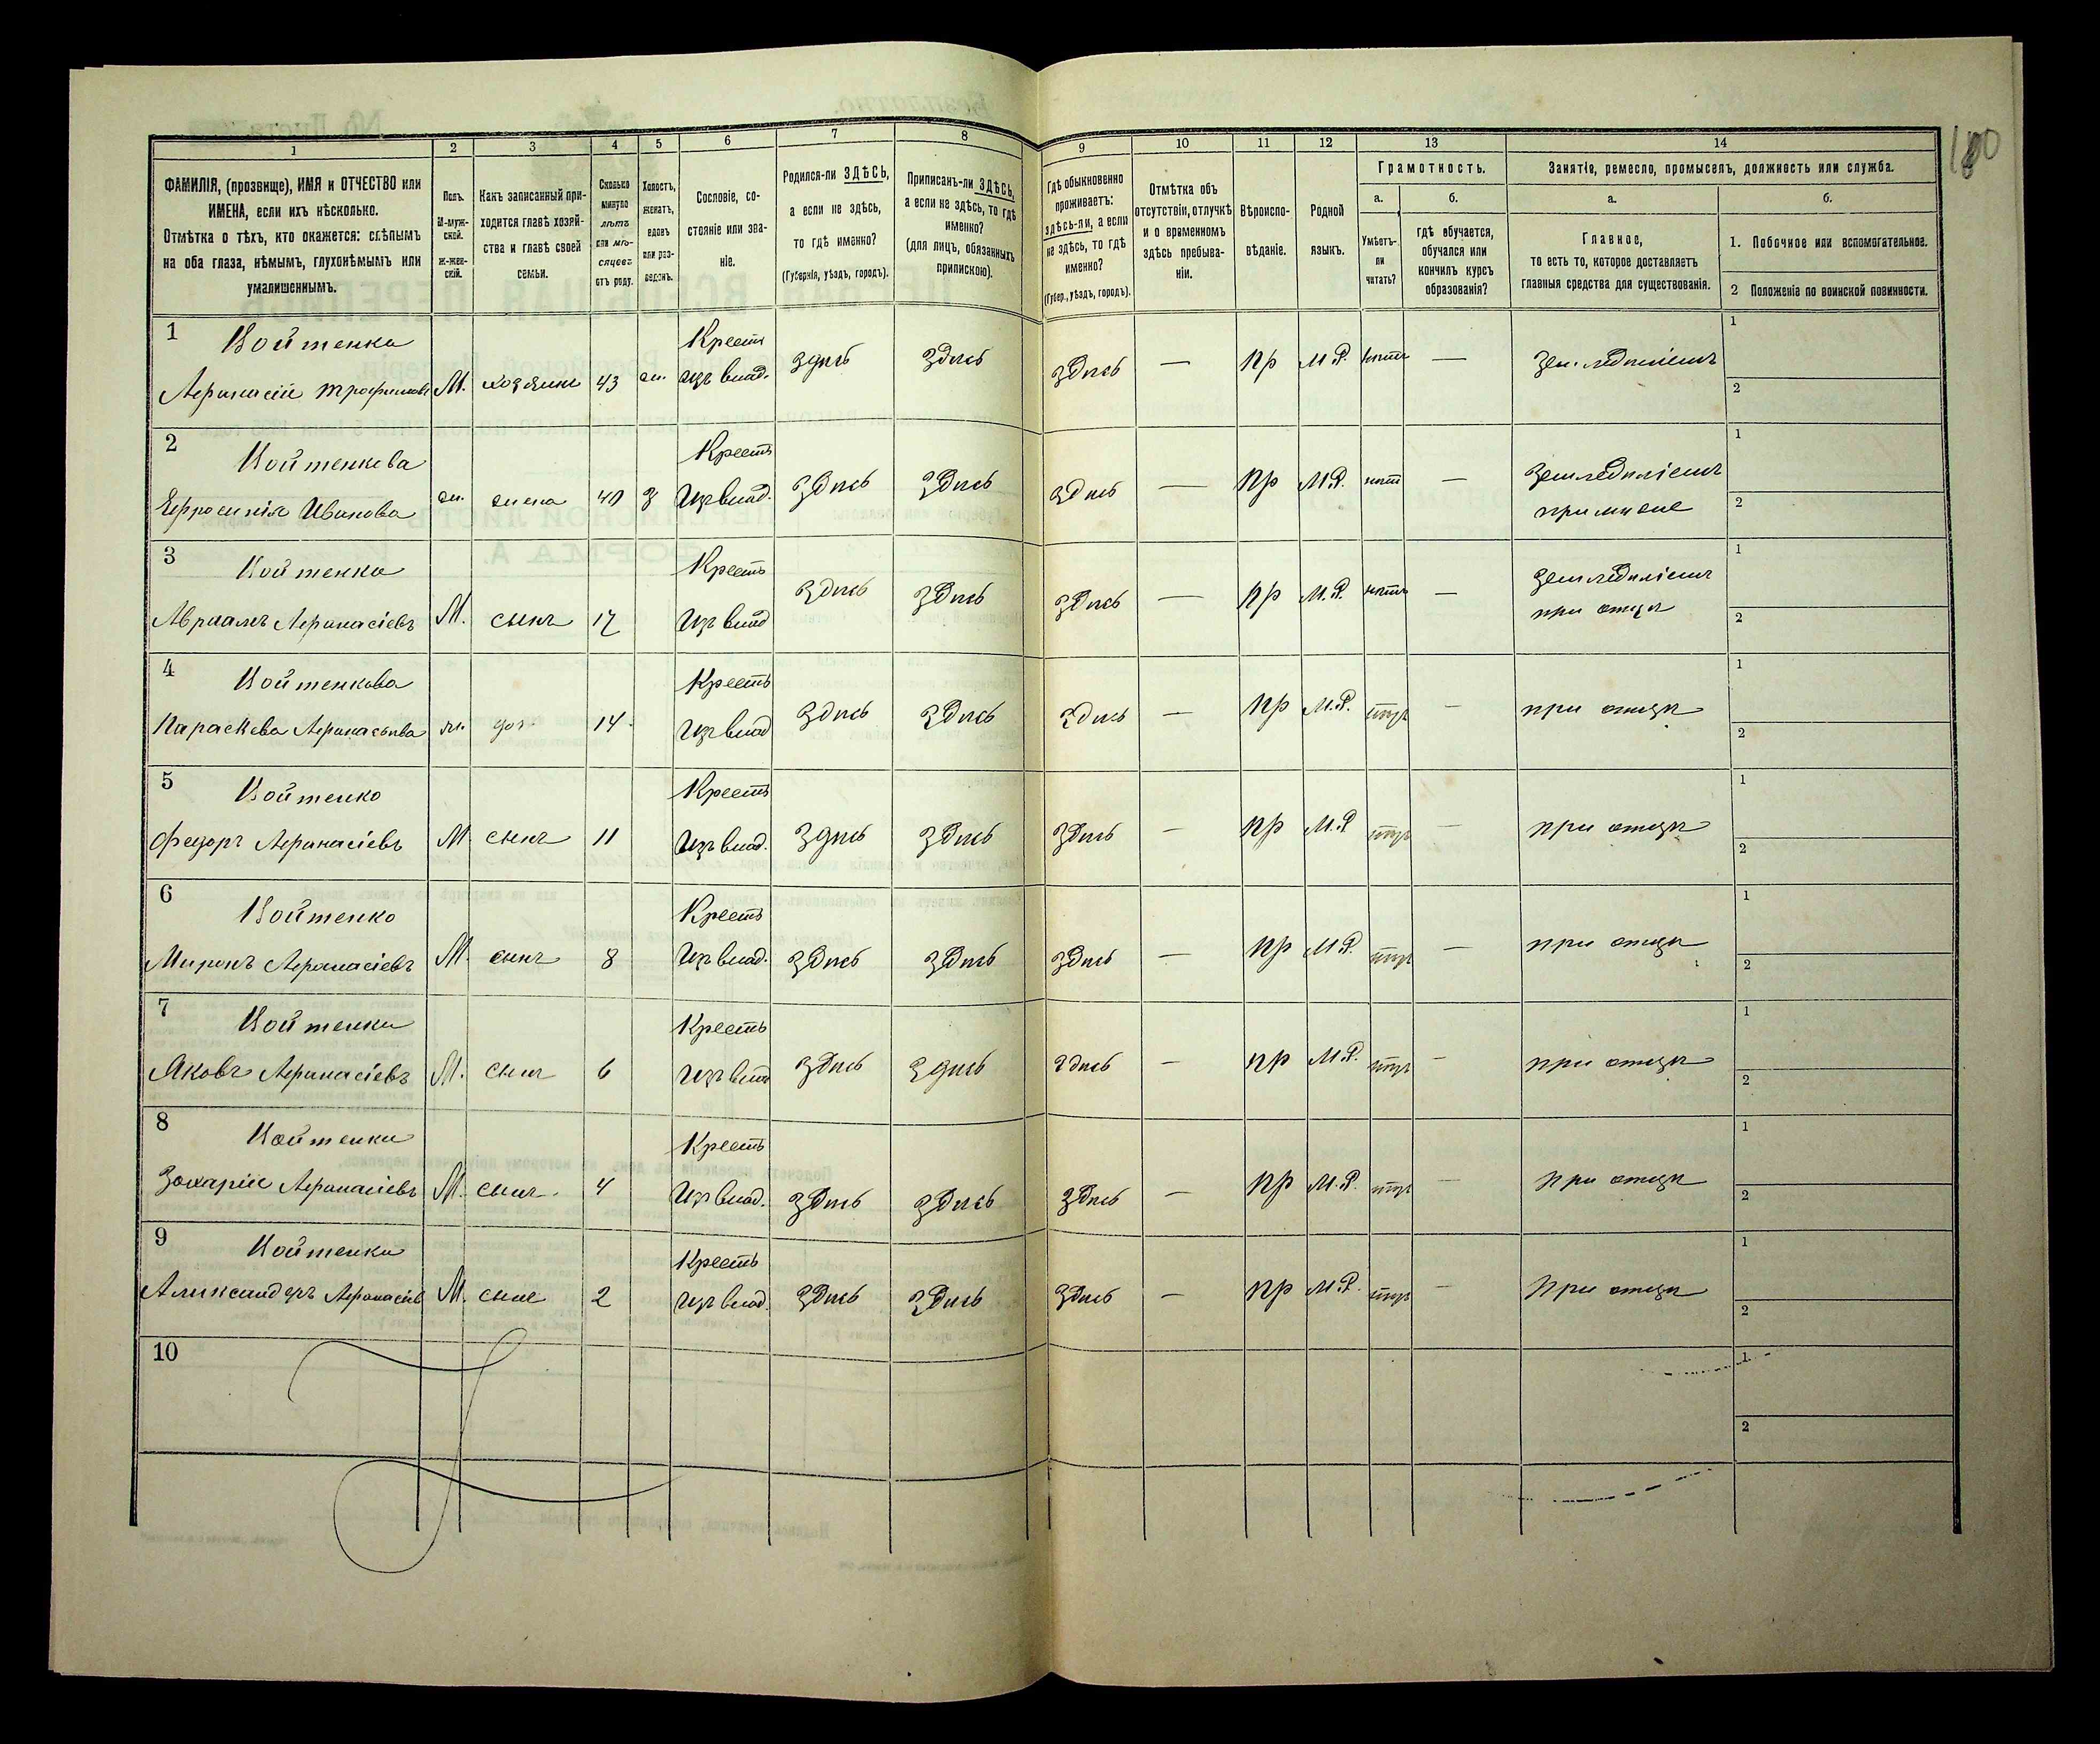 180
1 2 3 4 5 6 7 8 9 10 11 12 13 14
ФАМИЛІЯ, (прозвище), ИМЯ и ОТЧЕСТВО или ИМЕНА, если ихъ нѣсколько.
Отмѣтка о тѣхъ, кто окажется: слѣпымъ на оба глаза, нѣмымъ, глухонѣмымъ или умалишеннымъ.
Полъ.
М-мужской.
Ж-женскій.
Какъ записанный приходится главѣ хозяйства и главѣ своей семьи.
Сколько минуло лѣтъ или мѣсяцевъ отъ роду.
Холостъ, женатъ, вдовъ или разведенъ.
Сословіе, состояніе или званіе.
Родился-ли ЗДѢСЬ, а если не здѣсь, то гдѣ именно?
(Губернія, уѣздъ, городъ).
Приписанъ-ли ЗДѢСЬ, а если не здѣсь, то гдѣ именно?
(для лицъ, обязанныхъ припискою).
Гдѣ обыкновенно проживаетъ: здѣсь-ли, а если не здѣсь, то гдѣ именно?
(Губер., уѣздъ, городъ).
Отмѣтка объ отсутствіи, отлучкѣ и о временномъ здѣсь пребываніи.
Вѣроисповѣданіе.
Родной языкъ.
Грамотность.
а.
Умѣетъ-ли читать?
б.
гдѣ обучается, обучался или кончилъ курсъ образованія?
Занятіе, ремесло, промыселъ, должность или служба.
а.
Главное,
то есть то, которое доставляетъ главныя средства для существованія.
б.
1. Побочное или вспомогательное.
2 Положеніе по воинской повинности.
1 Войтенко Крестъ 1
Афанасій Трофимовъ М. хозяинъ 43 ж. изъ влад. здѣсь здѣсь здѣсь — пр М.Р. нѣтъ — земледѣліемъ 2
2 Войтенкова Крестъ 1
Ефросинія Иванова ж. жена 40 з Изъ влад. здѣсь здѣсь здѣсь — пр М.Р. нѣтъ — земледѣліемъ
при мужѣ 2
3 Войтенко Крестъ 1
Авраамъ Афанасіевъ М. сынъ 17 Изъ влад здѣсь здѣсь здѣсь — пр М.Р. нѣтъ — земледѣліемъ
при отцѣ 2
4 Войтенкова Крестъ 1
Параскева Афанасьева ж. доч. 14 Изъ влад здѣсь здѣсь здѣсь — пр М.Р. — при отцѣ 2
5 Войтенко Крестъ 1
Федоръ Афанасіевъ М. сынъ 11 Изъ влад. здѣсь здѣсь здѣсь — пр М.Р — при отцѣ 2
6 Войтенко Крестъ 1
Миронъ Афанасіевъ М. сынъ 8 Изъ влад. здѣсь здѣсь здѣсь — пр М.Р. — при отцѣ 2
7 Войтенко Крестъ 1
Яковъ Афанасіевъ М. сынъ 6 изъ влад здѣсь здѣсь здѣсь — пр М.Р. — при отцѣ 2
8 Войтенко Крестъ 1
Захарій Афанасіевъ М. сынъ 4 Изъ влад. здѣсь здѣсь здѣсь — пр М.Р. — При отцѣ 2
9 Войтенко Крестъ 1
Александеръ Афанасіев М. сынъ 2 изъ влад. здѣсь здѣсь здѣсь — пр М.Р. — При отцѣ 2
10 1
2